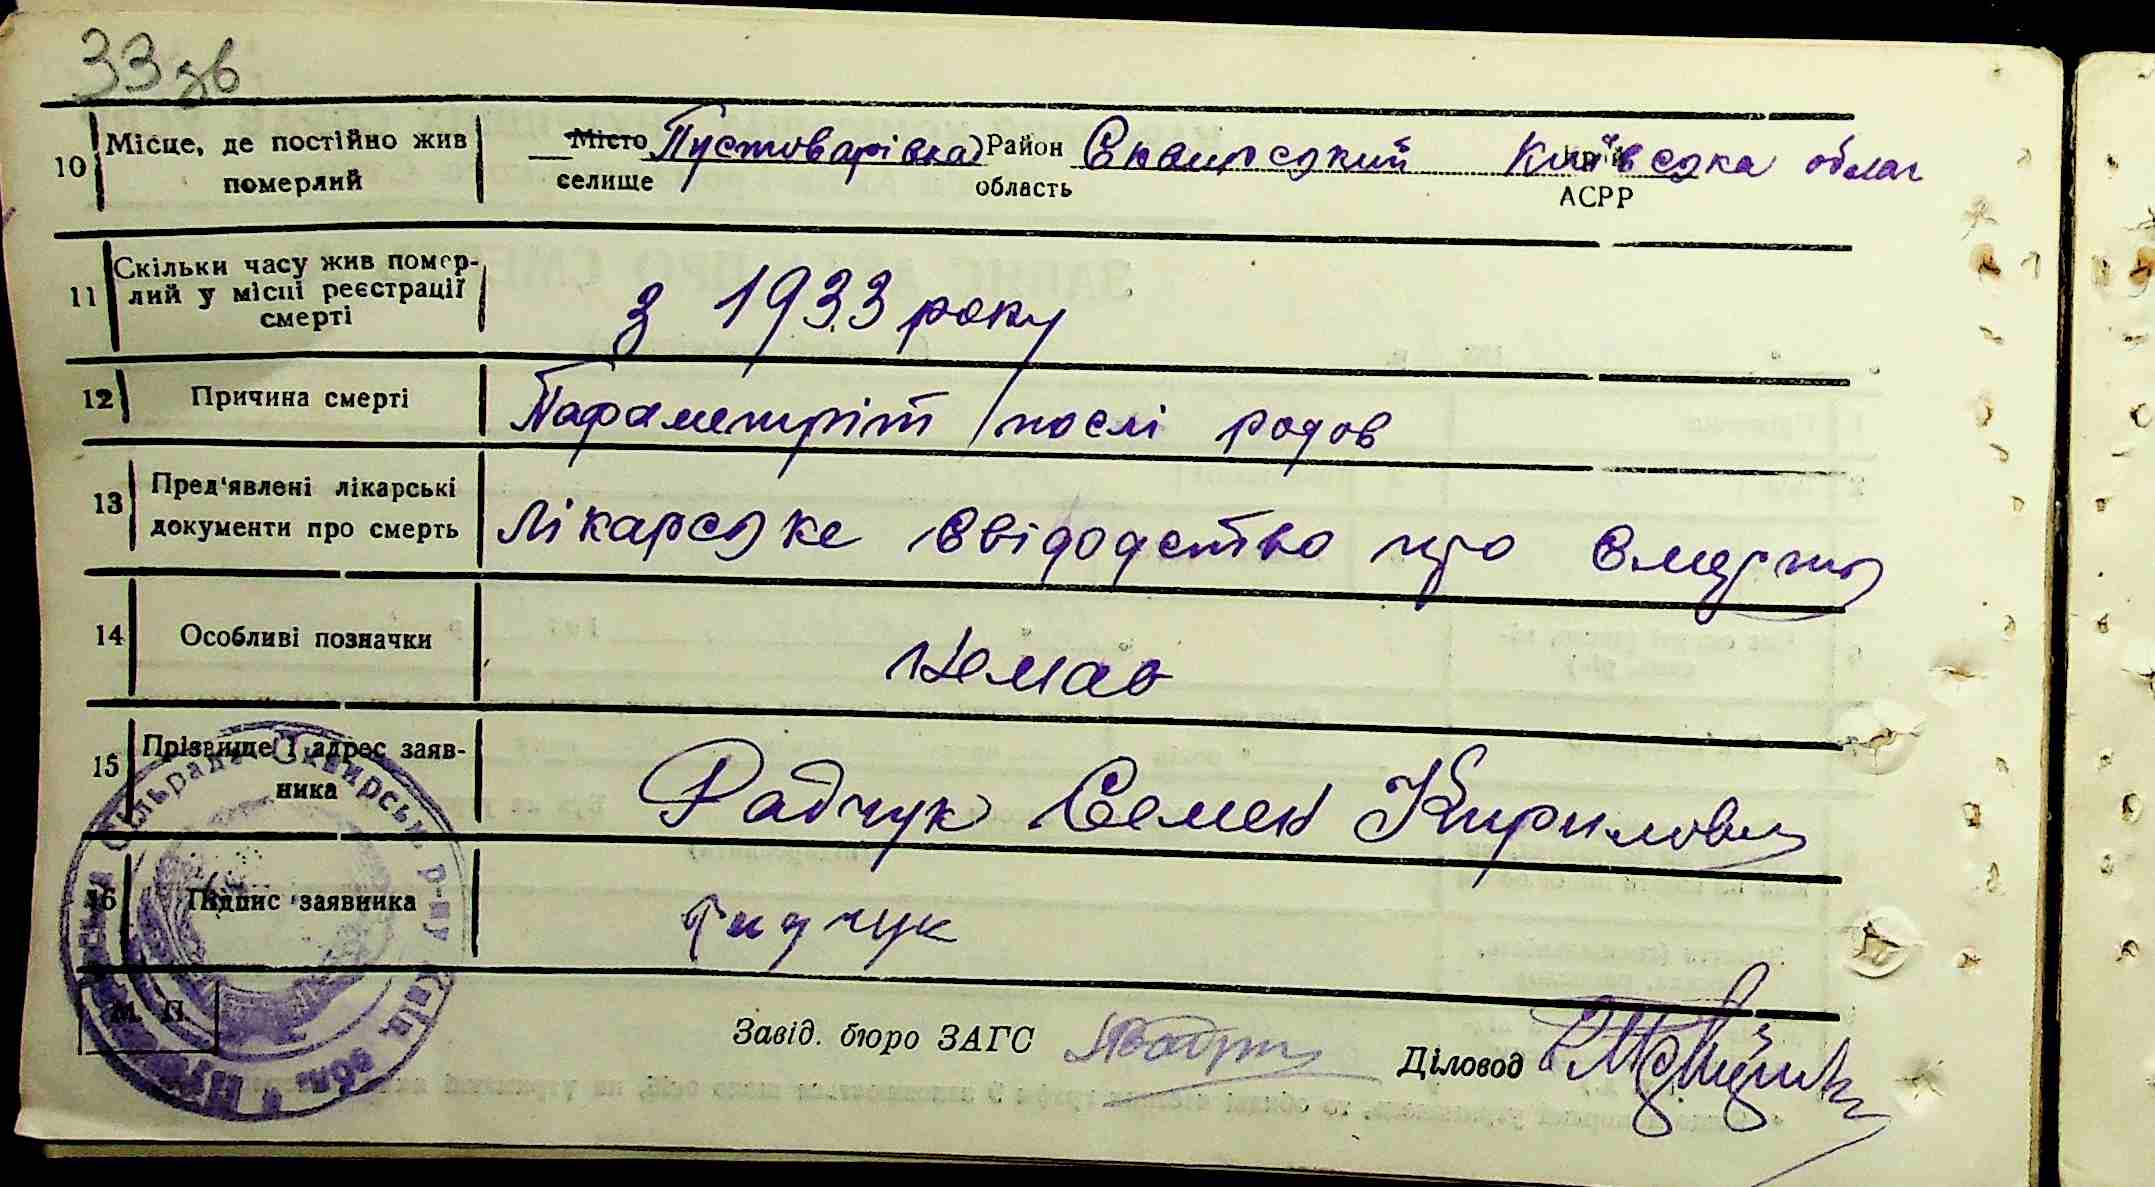 33 зв
10 Місце, де постійно жив померлий
Місто Пустоварівка Район Сквирський Київська облас
селище область АСРР
11 Скільки часу жив помер-
лий у місці реєстрації
смерті
з 1933 року
12 Причина смерті Параметріт /послі родов
13 Пред'явлені лікарські
документи про смерть
Лікарске свідоцтво про смерть
14 Особливі позначки
Немає
15 Прізвище і адрес заяв-
ника
Радчук Семен Кирилович
16 Підпис заявника Радчук
М. П.
Завід. бюро ЗАГС
Діловод